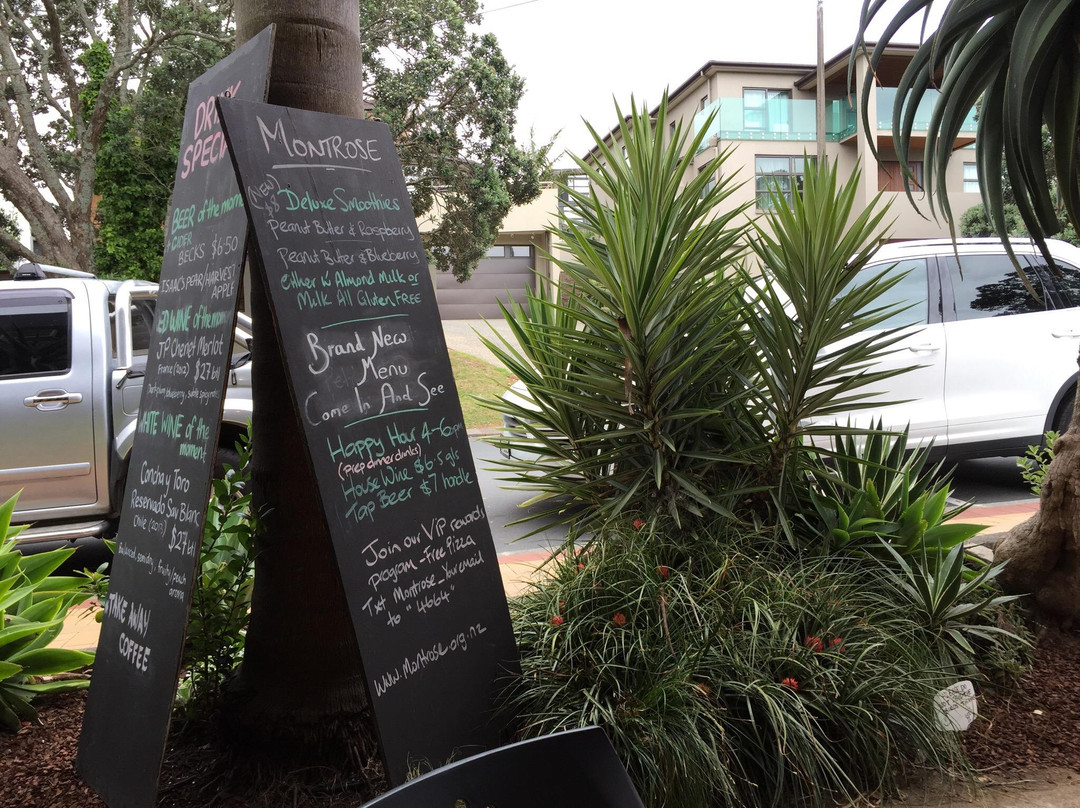 DRINK
SPECIA
BEER of the mom
CIDER
BECKS $6.50
ISAACS PEAR/HARVEST
APPLE
ED WINE of the mom
JP Chenet Merlot
France (2012) $27 btl
WHITE WINE of the
moment
Concha y Toro
Reservado Sav Blank
$27 btl
TAKE AWAY
COFFEE
MONTROSE
(NEW)
$8
Deluxe Smoothies
Peanut Butter & Raspberry
Peanut Butter & Blueberry
Either w Almond Milk or
Milk All Gluten FREE
Brand New
Menu
Come In And See
Happy Hour 4-6pm
(pre dinner drinks)
House Wine $6.5 gls
Tap Beer $7 handle
Join our VIP rewards
program_Free Pizza
Txt, Montrose_Your email
to "4664"
www.Montrose.org.nz